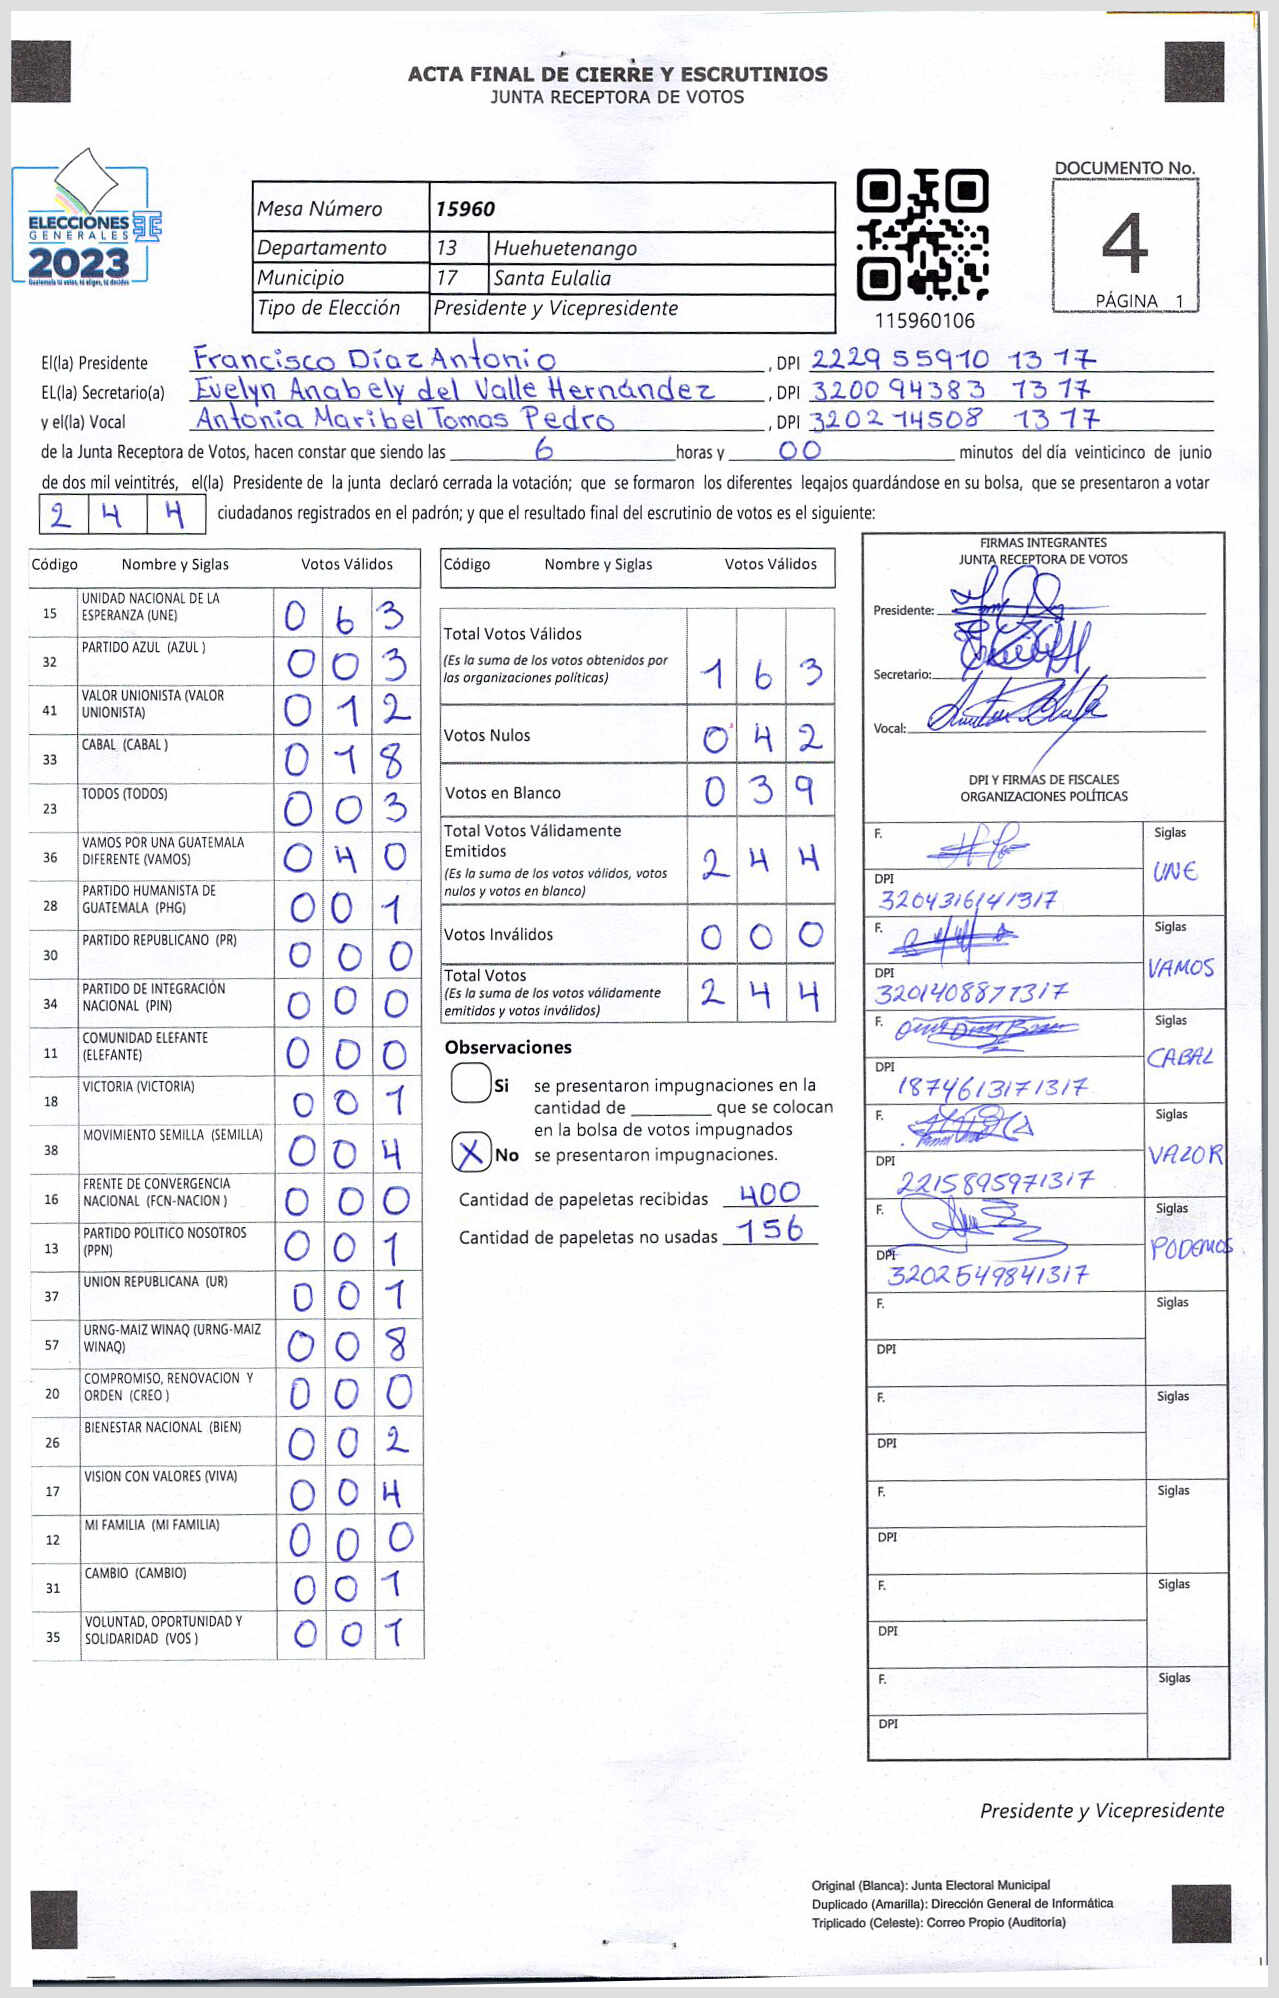 ACTA FINAL DE CIERRE Y ESCRUTINIOS
JUNTA RECEPTORA DE VOTOS
ELECCIONES
GENERALES
2023
Guatemala tú votas, tú eliges, tú decides
Mesa Número 15960
Departamento 13 Huehuetenango
Municipio 17 Santa Eulalia
Tipo de Elección Presidente y Vicepresidente
115960106
DOCUMENTO No.
4
PÁGINA 1
El(la) Presidente Francisco Díaz Antonio, DPI 2229 55910 1317
EL(la) Secretario(a) Evelyn Anabely del Valle Hernández, DPI 3200 94383 1317
y el(la) Vocal Antonia Maribel Tomas Pedro, DPI 3202 14508 1317
de la Junta Receptora de Votos, hacen constar que siendo las 6 horas y 00 minutos del día veinticinco de junio
de dos mil veintitrés, el(la) Presidente de la junta declaró cerrada la votación; que se formaron los diferentes legajos guardándose en su bolsa, que se presentaron a votar
2 4 4 ciudadanos registrados en el padrón; y que el resultado final del escrutinio de votos es el siguiente:
Código Nombre y Siglas Votos Válidos
15 UNIDAD NACIONAL DE LA ESPERANZA (UNE) 0 6 3
32 PARTIDO AZUL (AZUL ) 0 0 3
41 VALOR UNIONISTA (VALOR UNIONISTA) 0 1 2
33 CABAL (CABAL ) 0 1 8
23 TODOS (TODOS) 0 0 3
36 VAMOS POR UNA GUATEMALA DIFERENTE (VAMOS) 0 4 0
28 PARTIDO HUMANISTA DE GUATEMALA (PHG) 0 0 1
30 PARTIDO REPUBLICANO (PR) 0 0 0
34 PARTIDO DE INTEGRACIÓN NACIONAL (PIN) 0 0 0
11 COMUNIDAD ELEFANTE (ELEFANTE) 0 0 0
18 VICTORIA (VICTORIA) 0 0 1
38 MOVIMIENTO SEMILLA (SEMILLA) 0 0 4
16 FRENTE DE CONVERGENCIA NACIONAL (FCN-NACION ) 0 0 0
13 PARTIDO POLITICO NOSOTROS (PPN) 0 0 1
37 UNION REPUBLICANA (UR) 0 0 1
57 URNG-MAIZ WINAQ (URNG-MAIZ WINAQ) 0 0 8
20 COMPROMISO, RENOVACION Y ORDEN (CREO ) 0 0 0
26 BIENESTAR NACIONAL (BIEN) 0 0 2
17 VISION CON VALORES (VIVA) 0 0 4
12 MI FAMILIA (MI FAMILIA) 0 0 0
31 CAMBIO (CAMBIO) 0 0 1
35 VOLUNTAD, OPORTUNIDAD Y SOLIDARIDAD (VOS ) 0 0 1
Código Nombre y Siglas Votos Válidos
Total Votos Válidos
(Es la suma de los votos obtenidos por
las organizaciones políticas) 1 6 3
Votos Nulos 0 4 2
Votos en Blanco 0 3 9
Total Votos Válidamente
Emitidos
(Es la suma de los votos válidos, votos
nulos y votos en blanco) 2 4 4
Votos Inválidos 0 0 0
Total Votos
(Es la suma de los votos válidamente
emitidos y votos inválidos) 2 4 4
Observaciones
Si se presentaron impugnaciones en la
cantidad de ________ que se colocan
en la bolsa de votos impugnados
X No se presentaron impugnaciones.
Cantidad de papeletas recibidas 400
Cantidad de papeletas no usadas 156
FIRMAS INTEGRANTES
JUNTA RECEPTORA DE VOTOS
Presidente:
Secretario:
Vocal:
DPI Y FIRMAS DE FISCALES
ORGANIZACIONES POLÍTICAS
F. Siglas
UNE
DPI
3204316141317
F. Siglas
VAMOS
DPI
3201408871317
F. Siglas
CABAL
DPI
1874613171317
F. Siglas
VALOR
DPI
2215895971317
F. Siglas
PODEMOS
DPI
3202549841317
F. Siglas
DPI
F. Siglas
DPI
F. Siglas
DPI
F. Siglas
DPI
F. Siglas
DPI
Presidente y Vicepresidente
Original (Blanca): Junta Electoral Municipal
Duplicado (Amarilla): Dirección General de Informática
Triplicado (Celeste): Correo Propio (Auditoría)